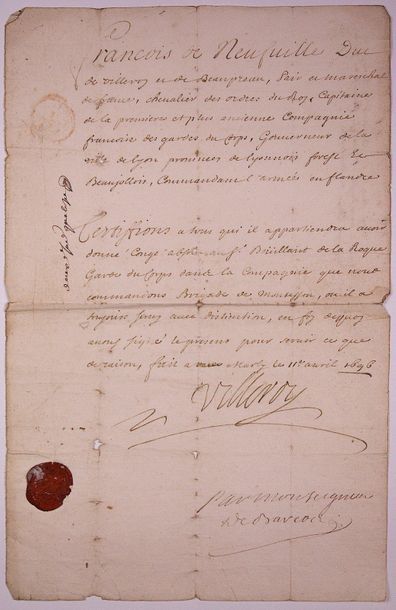 François de Neufuille Duc
de villeroy et de Beaupreau, Pair et mareschal
de france, chevalier des ordres du Roy, Capitaine
de la premieres et plus ancienne Compagnie
francoise des gardes du Corps, Gouverneur de la
ville de lyon prouinces de lyonnois forest et
Beaujollois, Commandant l'armée en flandre
Certiffions a tous qui il appartiendra auoir
donné Congé Brillant de la Roque
Garde du Corps dans la Compagnie que nous
commandons Brigade de ou il a
toujours seruy auec distinction, en foy dequoy
auons signé le present pour seruir ce que
de raison, fait a Marly le 11e auril 1696
Villeroy
Par monseigneur